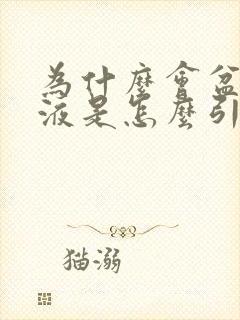 為什麼會盆
液是怎麼引
猫溺